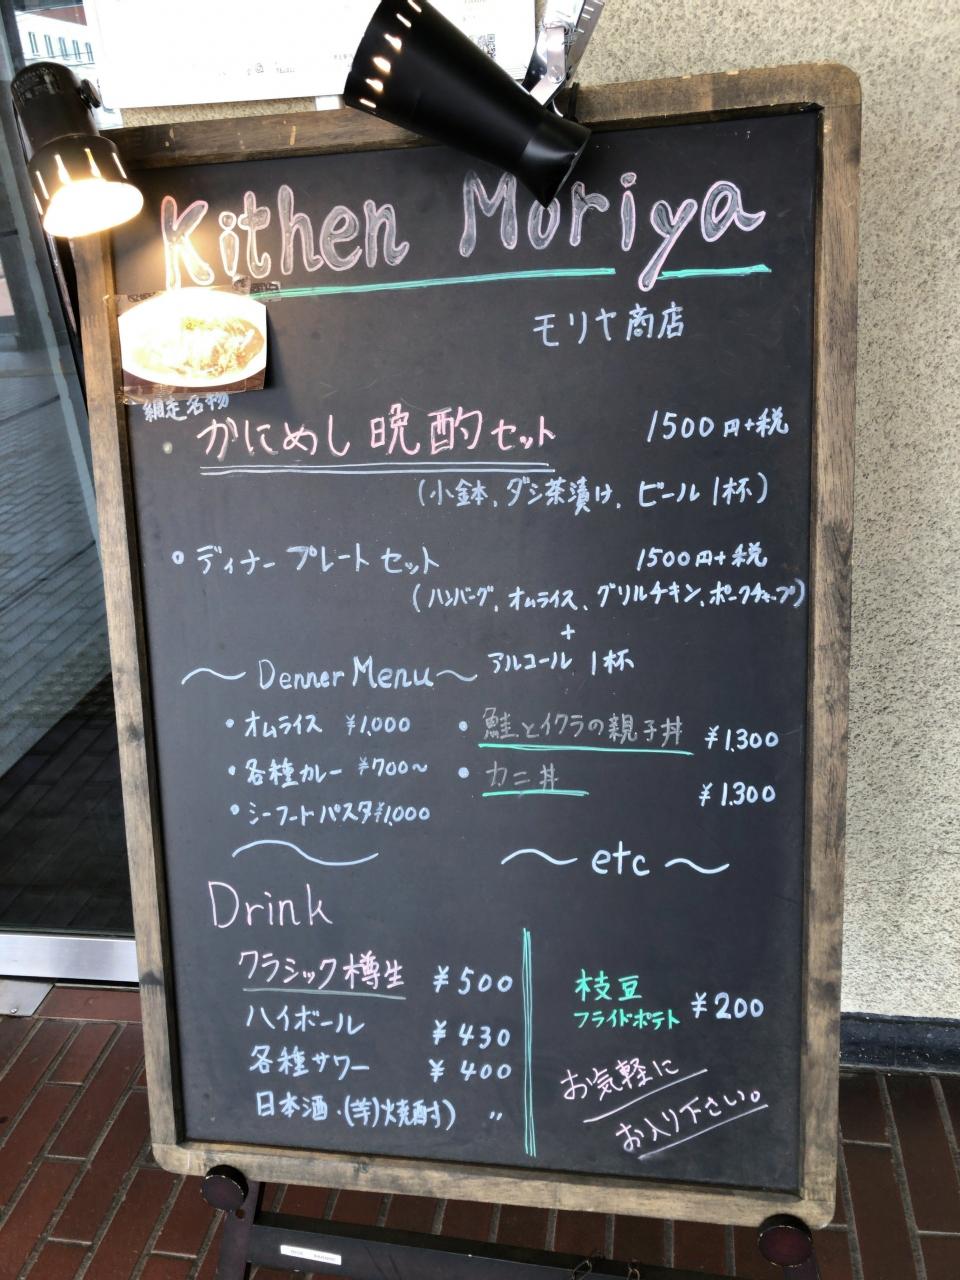 Kithen Moriya
モリヤ商店
網走名物
かにめし晩酌セット 1500円+税
(小鉢、ダシ茶漬け、ビール1杯)
・ディナープレートセット 1500円+税
(ハンバーグ、オムライス、グリルチキン、ポークチャップ)
+
アルコール 1杯
〜DennerMenu〜
・オムライス ¥1,000
・各種カレー ¥700〜
・シーフードパスタ¥1,000
・鮭とイクラの親子丼 ¥1.300
・カニ丼 ¥1.300
〜etc〜
Drink
クラシック樽生 ¥500
ハイボール ¥430
各種サワー ¥400
日本酒・(芋)焼酎) 〃
枝豆
フライドポテト ¥200
お気軽に
お入り下さい。